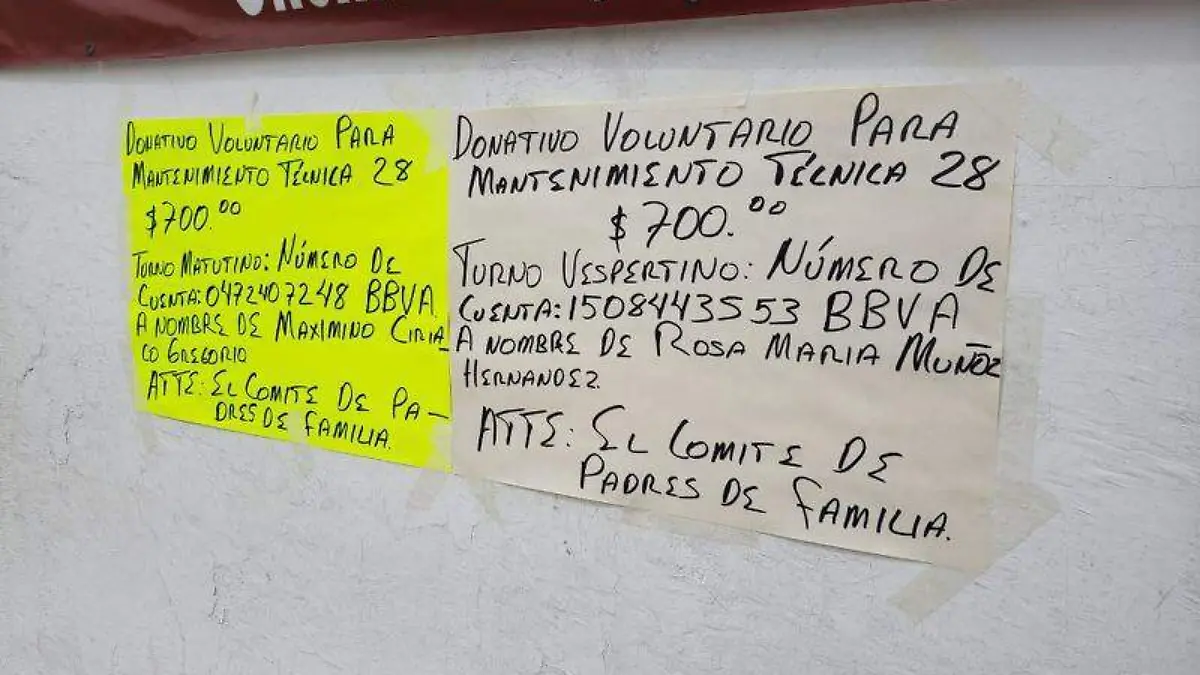 DONATIVO VOLUNTARIO PARA
MANTENIMIENTO TÉCNICA 28
$700.00
TURNO MATUTINO: NÚMERO DE
CUENTA: 0472407248 BBVA
A NOMBRE DE MAXIMINO CIRIA_
CO GREGORIO
ATTE: EL COMITE DE PA-
DRES DE FAMILIA.
DONATIVO VOLUNTARIO PARA
MANTENIMIENTO TÉCNICA 28
$700.00
TURNO VESPERTINO: NÚMERO DE
CUENTA: 1508443553 BBVA
A NOMBRE DE ROSA MARIA MUÑOZ
HERNANDEZ.
ATTE: EL COMITE DE
PADRES DE FAMILIA.